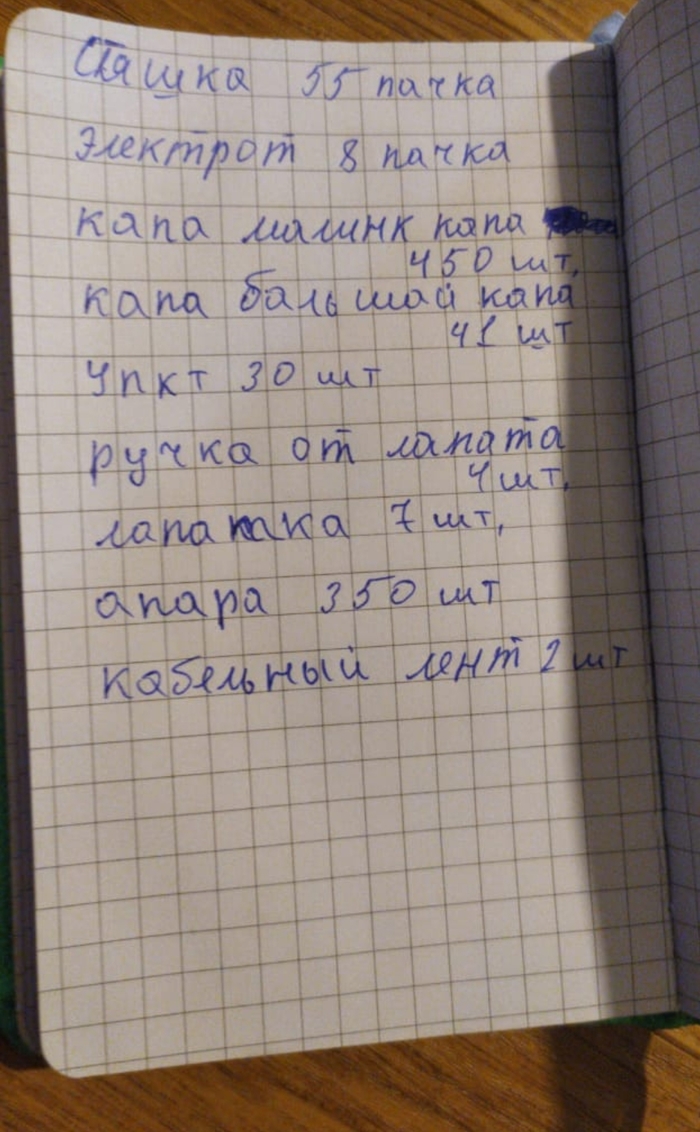 Стяшка 55 пачка
Электрот 8 пачка
капа малинк капа
450 шт,
капа балшьшай капа
41 шт
Упкт 30 шт
ручка от лапата
4 шт,
лапатака 7 шт,
апара 350 шт
кабельный лент 2 шт